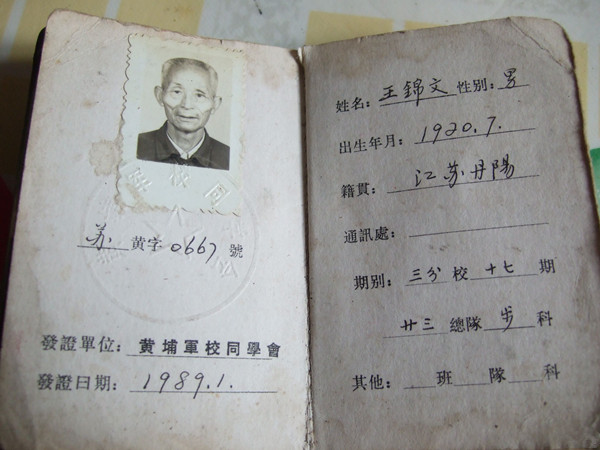 苏 黄字 0667 號
發證單位：黄埔軍校同學會
發證日期：1989.1.
姓名：王錦文 性別：男
出生年月：1920.7.
籍貫：江苏丹陽
通訊處：
期別：三分校 十七 期
廿三 總隊 步 科
其他： 班 隊 科